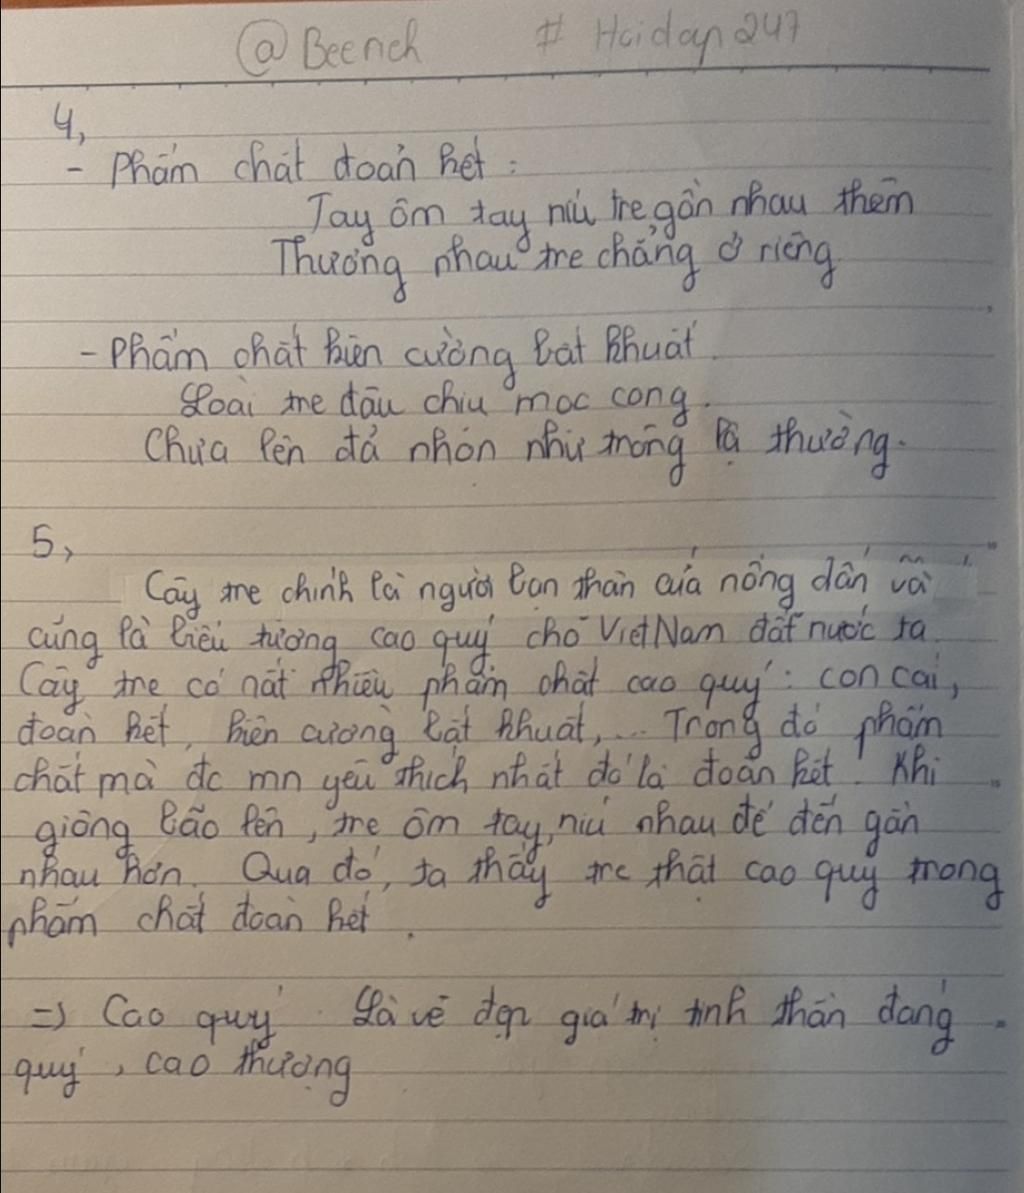 @Beench # Hoidap247
4,
- Phẩm chất đoàn kết :
Tay ôm tay níu tre gần nhau thêm
Thương nhau tre chẳng ở riêng
- Phẩm chất kiên cường bất khuất.
Loài tre đâu chịu mọc cong.
Chưa lên đã nhọn như trông lạ thường.
5,
Cây tre chính là người bạn thân của nông dân và
cũng là biểu tượng cao quý cho Việt Nam đất nước ta.
Cây tre có rất nhiều phẩm chất cao quý : con cái,
đoàn kết, kiên cường bất khuất, ... Trong đó phẩm
chất mà đc mn yêu thích nhất đó là đoàn kết. Khi
giông bão lên, tre ôm tay, níu nhau để đến gần
nhau hơn. Qua đó, ta thấy tre thật cao quý trong
phẩm chất đoàn kết.
=> Cao quý : Là vẻ đẹp giá trị tinh thần đáng
quý, cao thượng